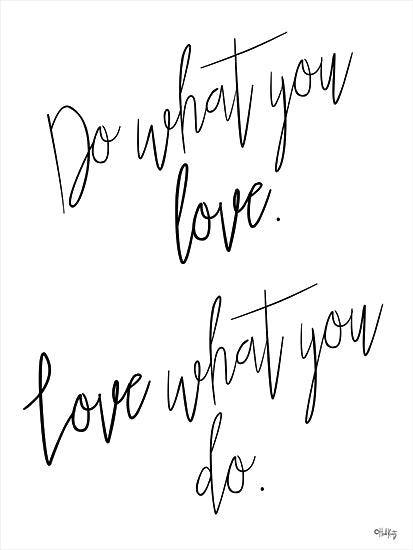 Do what you
love.
Love what you
do.